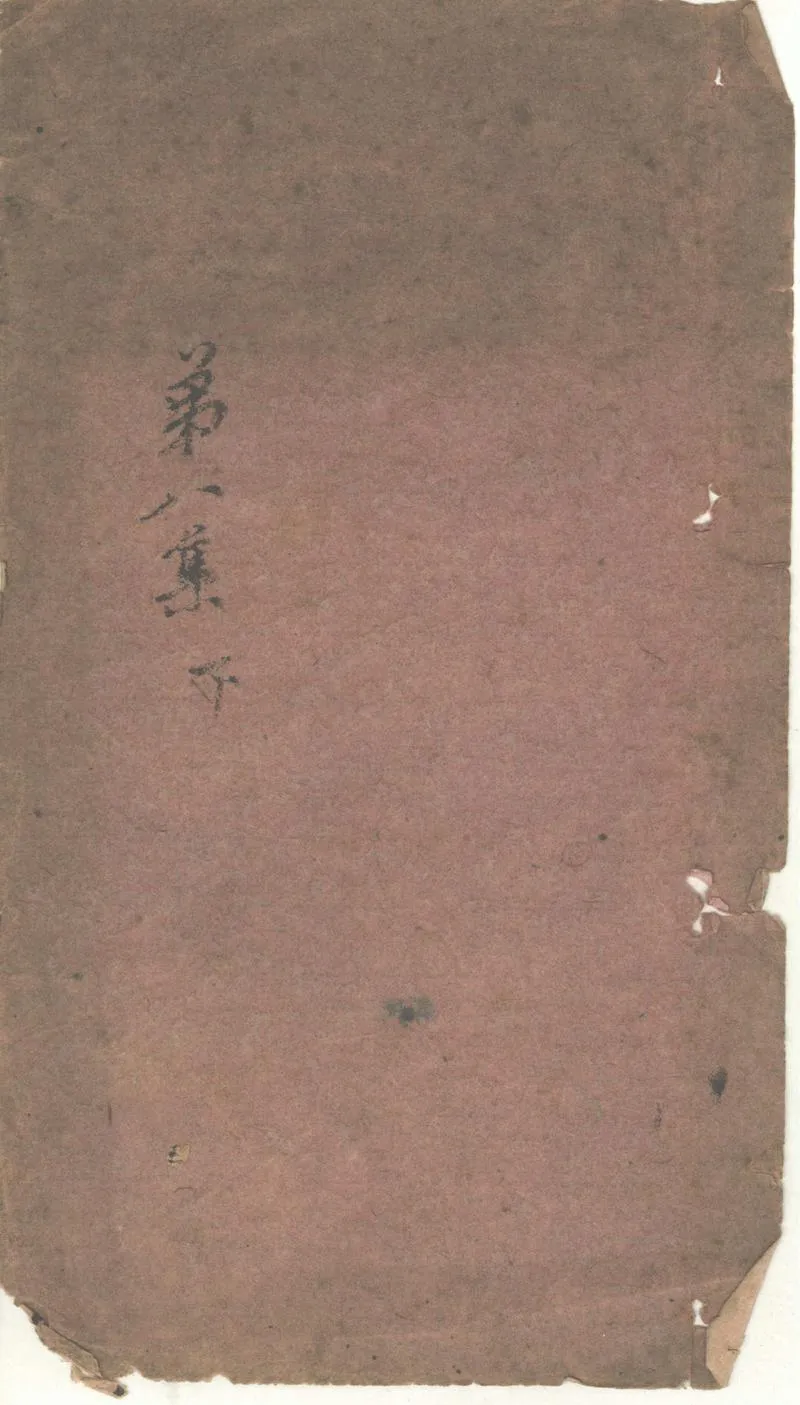 第八集 下